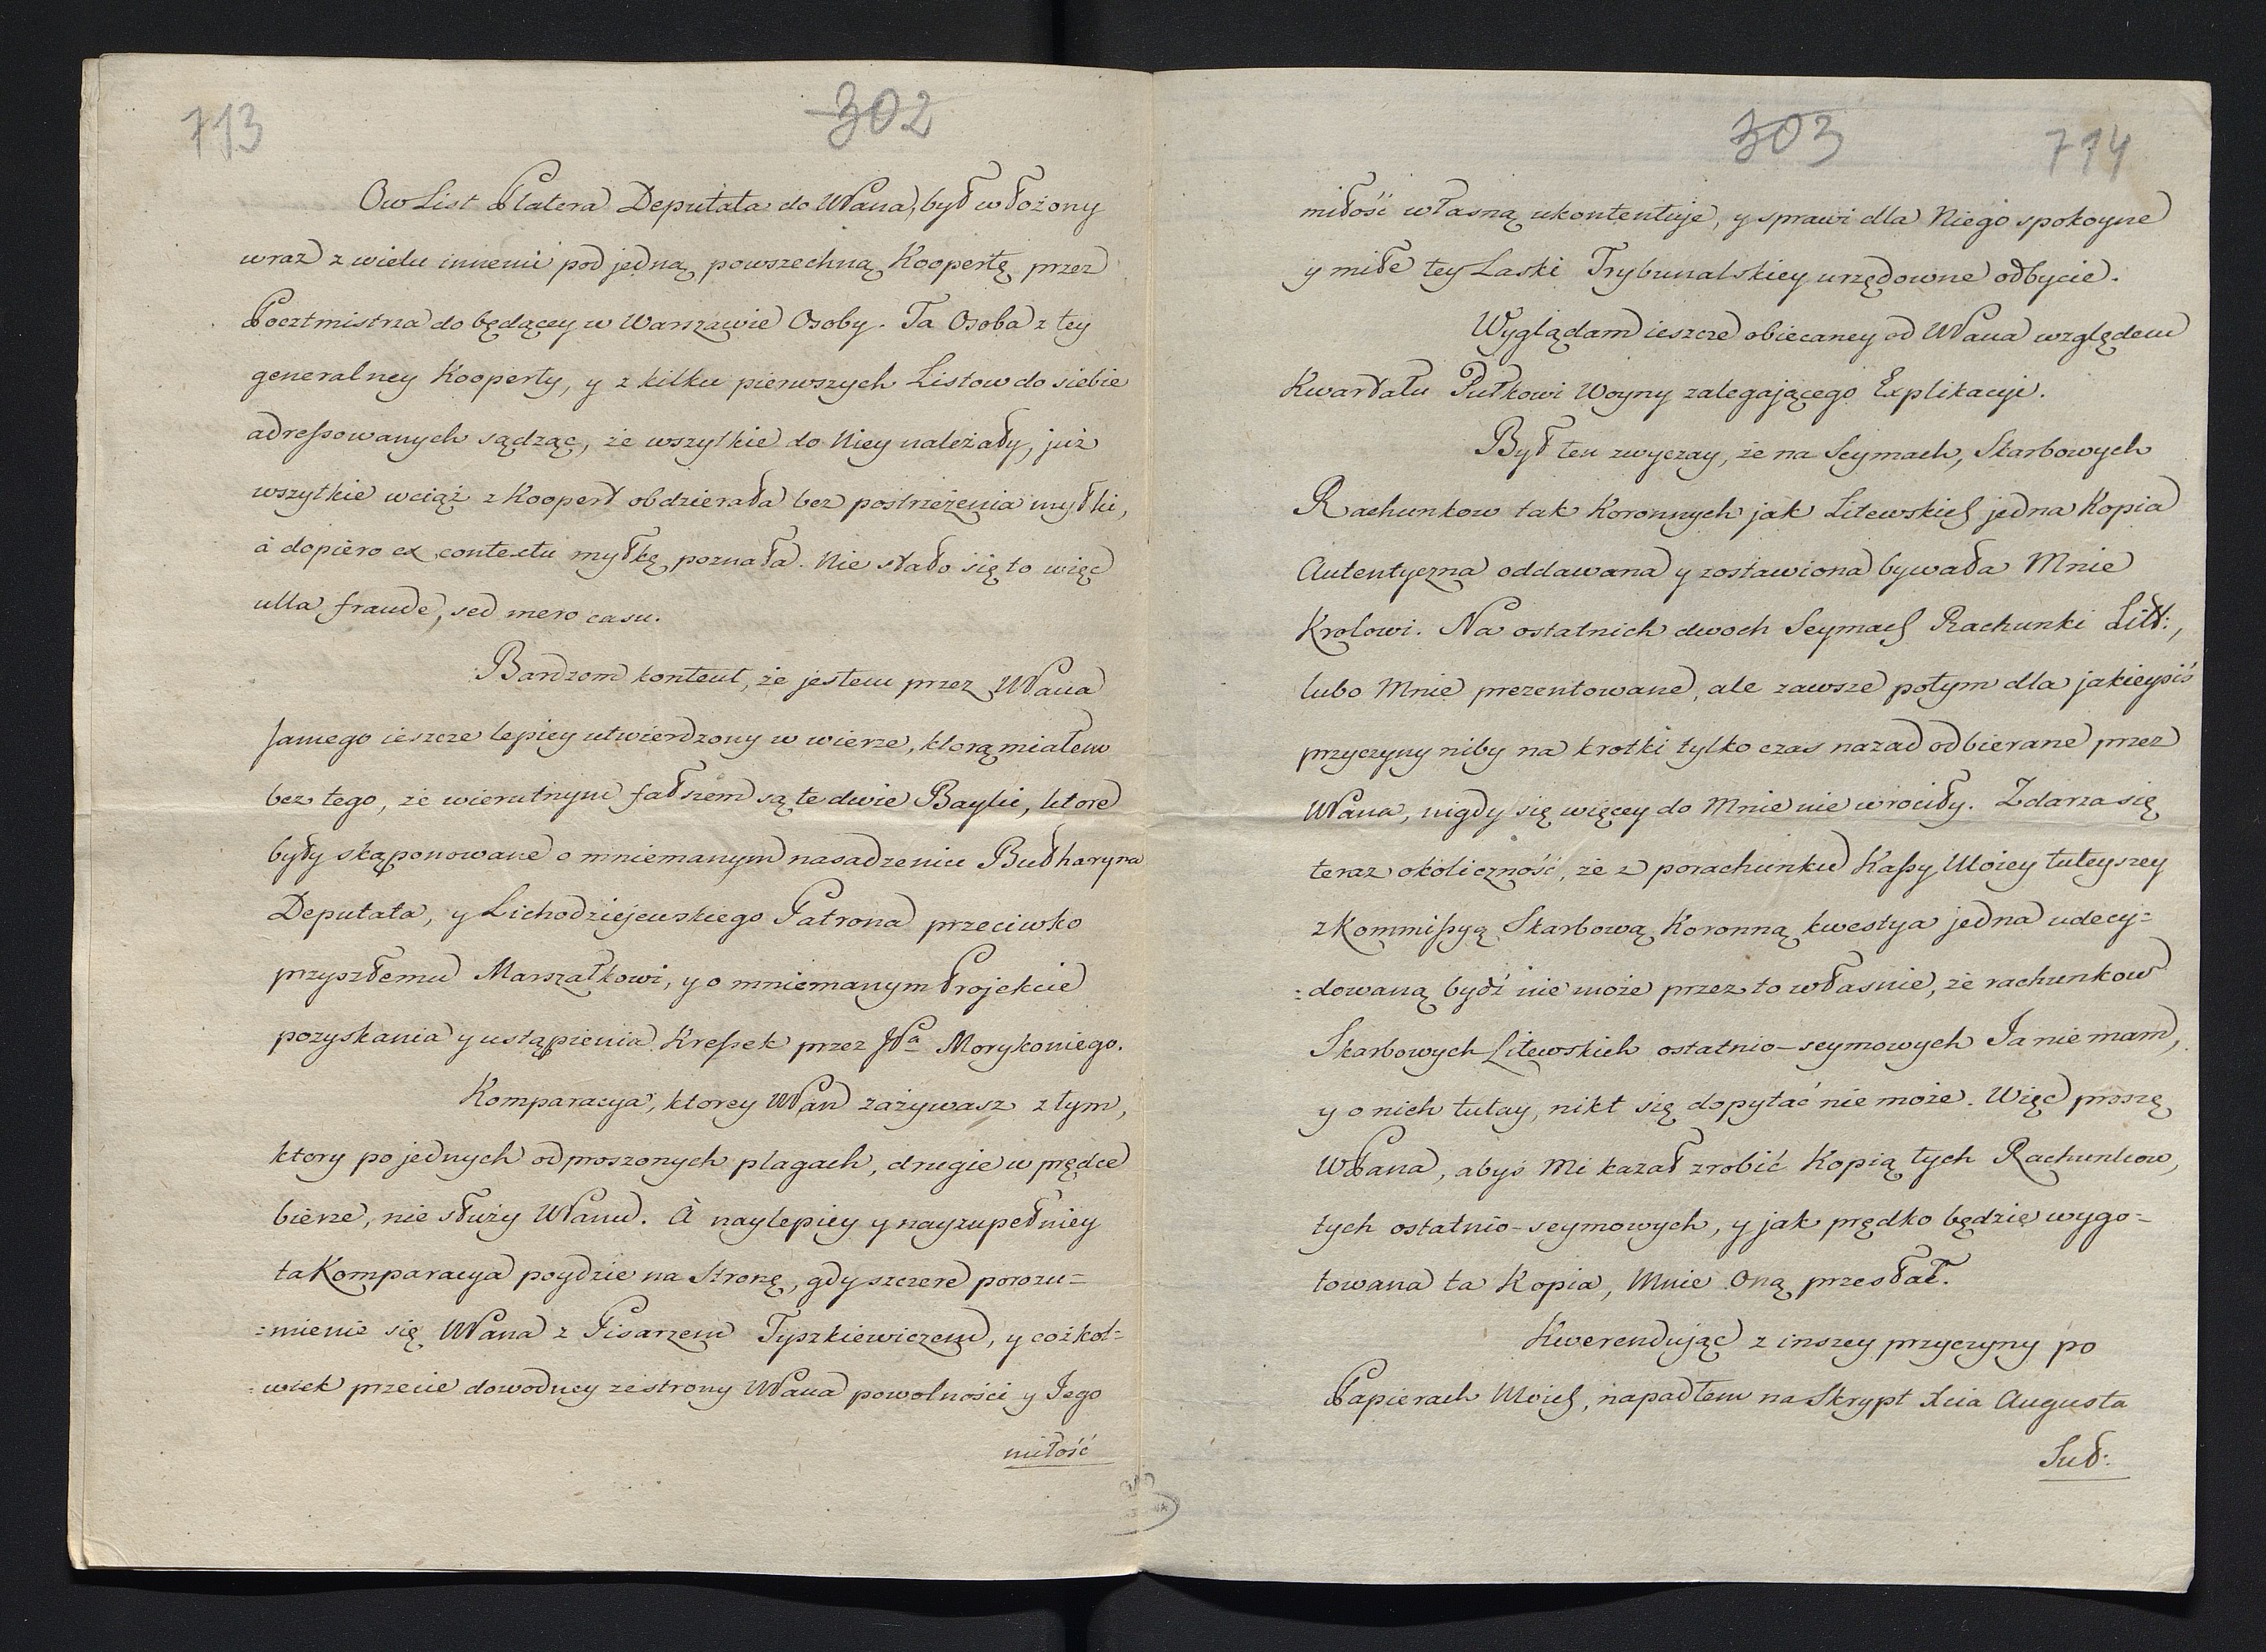 713
302
Ow List Platera Deputata do WPana, był włożony
wraz z wielu innemi pod jedną powszechną Koopertę przez
Pocztmistrza do będącey w Warszawie Osoby. Ta Osoba z tey
generalney Kooperty, y z kilku pierwszych Listow do siebie
adressowanych sądząc, że wszytkie do Niey należały, już
wszytkie wciąż z Koopert obdzierała bez postrzeżenia myłki,
à dopiero ex contextu myłkę poznała. Nie stało się to więc
ulla fraude, sed mero casu.
Bardzom kontent, że jestem przez WPana
samego ieszcze lepiey utwierdzony w wierze, ktorą miałem
bez tego, że wierutnym fałszem są te dwie Bayki, ktore
były skąponowane o mniemanym nasadzeniu Bułharyna
Deputata, y Lichodziejewskiego Patrona przeciwko
przyszłemu Marszałkowi, y o mniemanym Projekcie
pozyskania y ustąpienia Kresek przez JPa Morykoniego.
Komparacya, ktorey WPan zażywasz z tym,
ktory po jednych odproszonych plagach, drugie w prędce
bierze, nie służy WPanu. À naylepiey y nayzupełniey
ta Komparacya poydzie na Stronę, gdy szczere porozu=
=mienie się WPana z Pisarzem Tyszkiewiczem, y cożkol=
=wiek przecie dowodney ze strony WPana powolności y Jego
miłość
303
714
miłość własną ukontentuje, y sprawi dla Niego spokoyne
y miłe tey Laski Trybunalskiey urzędowne odbycie.
Wyglądam ieszcze obiecaney od WPana względem
Kwartału Pułkowi Woyny zalegającego Explikacyi.
Był ten zwyczay, że na Seymach, Skarbowych
Rachunkow tak Koronnych jak Litewskich jedna Kopia
Autentyczna oddawana y zostawiona bywała Mnie
Krolowi. Na ostatnich dwoch Seymach Rachunki Litt:,
lubo Mnie prezentowane, ale zawsze potym dla jakieysiś
przyczyny niby na krotki tylko czas nazad odbierane przez
WPana, nigdy się więcey do Mnie nie wrociły. Zdarza się
teraz okoliczność, że z porachunku Kassy Moiey tuteyszey
z Kommissyą Skarbową Koronną kwestya jedna udecy=
=dowaną bydź nie może przez to własnie, że rachunkow
Skarbowych Litewskich ostatnio-seymowych Ja nie mam,
y o nich tutay, nikt się dopytać nie może. Więc proszę
WPana, abyś Mi kazał zrobić Kopią tych Rachunkow,
tych ostatnio-seymowych, y jak prędko będzie wygo=
towana ta Kopia, Mnie Oną przesłał.
Kwerendując z inszey przyczyny po
Papierach Moich, napadłem na Skrypt Xcia Augusta
Suł: